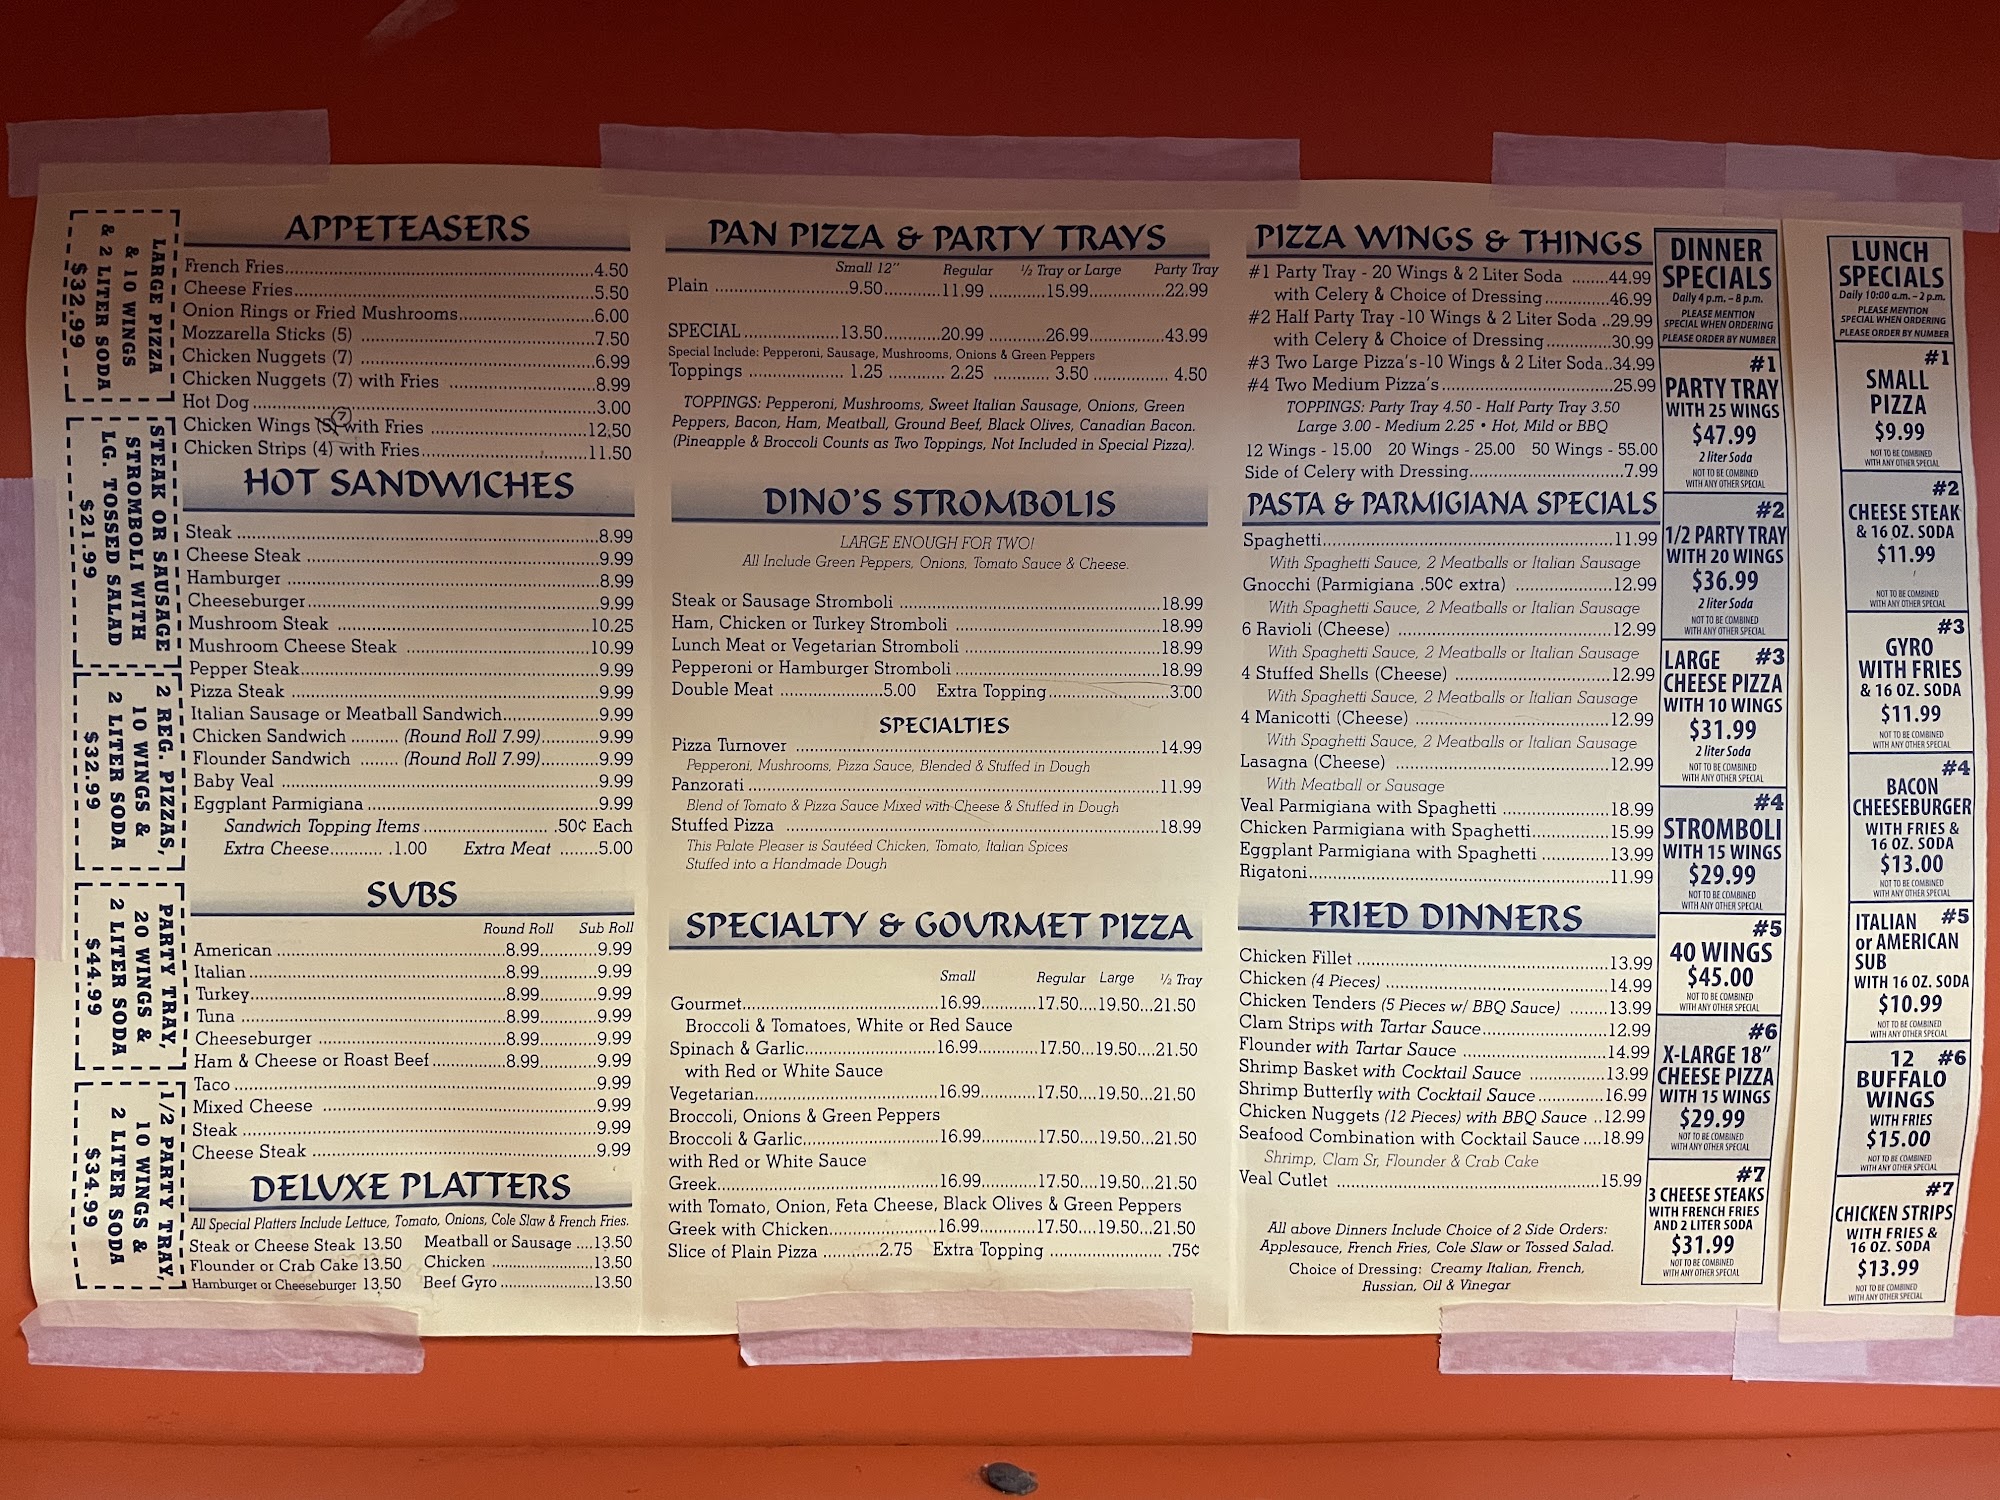 LARGE PIZZA
& 10 WINGS
& 2 LITER SODA
$32.99
STEAK OR SAUSAGE
STROMBOLI WITH
LG. TOSSED SALAD
$21.99
2 REG. PIZZAS,
10 WINGS &
2 LITER SODA
$32.99
PARTY TRAY,
20 WINGS &
2 LITER SODA
$44.99
1/2 PARTY TRAY,
10 WINGS &
2 LITER SODA
$34.99
APPETEASERS
French Fries....4.50
Cheese Fries....5.50
Onion Rings or Fried Mushrooms....6.00
Mozzarella Sticks (5) ....7.50
Chicken Nuggets (7) ....6.99
Chicken Nuggets (7) with Fries ....8.99
Hot Dog....3.00
7
Chicken Wings (5) with Fries ....12.50
Chicken Strips (4) with Fries....11.50
HOT SANDWICHES
Steak ....8.99
Cheese Steak ....9.99
Hamburger ....8.99
Cheeseburger....9.99
Mushroom Steak ....10.25
Mushroom Cheese Steak ....10.99
Pepper Steak....9.99
Pizza Steak ....9.99
Italian Sausage or Meatball Sandwich....9.99
Chicken Sandwich ....(Round Roll 7.99)....9.99
Flounder Sandwich ....(Round Roll 7.99)....9.99
Baby Veal ....9.99
Eggplant Parmigiana ....9.99
Sandwich Topping Items .... .50¢ Each
Extra Cheese.... .1.00 Extra Meat ....5.00
SUBS
Round Roll Sub Roll
American ....8.99....9.99
Italian....8.99....9.99
Turkey....8.99....9.99
Tuna ....8.99....9.99
Cheeseburger ....8.99....9.99
Ham & Cheese or Roast Beef....8.99....9.99
Taco ....9.99
Mixed Cheese ....9.99
Steak ....9.99
Cheese Steak ....9.99
DELUXE PLATTERS
All Special Platters Include Lettuce, Tomato, Onions, Cole Slaw & French Fries.
Steak or Cheese Steak 13.50 Meatball or Sausage ....13.50
Flounder or Crab Cake 13.50 Chicken ....13.50
Hamburger or Cheeseburger 13.50 Beef Gyro ....13.50
PAN PIZZA & PARTY TRAYS
Small 12" Regular ½ Tray or Large Party Tray
Plain ....9.50....11.99....15.99....22.99
SPECIAL....13.50....20.99....26.99....43.99
Special Include: Pepperoni, Sausage, Mushrooms, Onions & Green Peppers
Toppings .... 1.25 .... 2.25 .... 3.50 .... 4.50
TOPPINGS: Pepperoni, Mushrooms, Sweet Italian Sausage, Onions, Green
Peppers, Bacon, Ham, Meatball, Ground Beef, Black Olives, Canadian Bacon.
(Pineapple & Broccoli Counts as Two Toppings, Not Included in Special Pizza).
DINO'S STROMBOLIS
LARGE ENOUGH FOR TWO!
All Include Green Peppers, Onions, Tomato Sauce & Cheese.
Steak or Sausage Stromboli ....18.99
Ham, Chicken or Turkey Stromboli ....18.99
Lunch Meat or Vegetarian Stromboli ....18.99
Pepperoni or Hamburger Stromboli....18.99
Double Meat ....5.00 Extra Topping....3.00
SPECIALTIES
Pizza Turnover ....14.99
Pepperoni, Mushrooms, Pizza Sauce, Blended & Stuffed in Dough
Panzorati....11.99
Blend of Tomato & Pizza Sauce Mixed with Cheese & Stuffed in Dough
Stuffed Pizza ....18.99
This Palate Pleaser is Sautéed Chicken, Tomato, Italian Spices
Stuffed into a Handmade Dough
SPECIALTY & GOURMET PIZZA
Small Regular Large ½ Tray
Gourmet....16.99....17.50....19.50....21.50
Broccoli & Tomatoes, White or Red Sauce
Spinach & Garlic....16.99....17.50....19.50....21.50
with Red or White Sauce
Vegetarian....16.99....17.50....19.50....21.50
Broccoli, Onions & Green Peppers
Broccoli & Garlic....16.99....17.50....19.50....21.50
with Red or White Sauce
Greek....16.99....17.50....19.50....21.50
with Tomato, Onion, Feta Cheese, Black Olives & Green Peppers
Greek with Chicken....16.99....17.50....19.50....21.50
Slice of Plain Pizza ....2.75 Extra Topping .... .75¢
PIZZA WINGS & THINGS
#1 Party Tray - 20 Wings & 2 Liter Soda ....44.99
with Celery & Choice of Dressing....46.99
#2 Half Party Tray -10 Wings & 2 Liter Soda ..29.99
with Celery & Choice of Dressing....30.99
#3 Two Large Pizza's-10 Wings & 2 Liter Soda..34.99
#4 Two Medium Pizza's....25.99
TOPPINGS: Party Tray 4.50 - Half Party Tray 3.50
Large 3.00 - Medium 2.25 • Hot, Mild or BBQ
12 Wings - 15.00 20 Wings - 25.00 50 Wings - 55.00
Side of Celery with Dressing....7.99
PASTA & PARMIGIANA SPECIALS
Spaghetti....11.99
With Spaghetti Sauce, 2 Meatballs or Italian Sausage
Gnocchi (Parmigiana .50¢ extra) ....12.99
With Spaghetti Sauce, 2 Meatballs or Italian Sausage
6 Ravioli (Cheese) ....12.99
With Spaghetti Sauce, 2 Meatballs or Italian Sausage
4 Stuffed Shells (Cheese) ....12.99
With Spaghetti Sauce, 2 Meatballs or Italian Sausage
4 Manicotti (Cheese) ....12.99
With Spaghetti Sauce, 2 Meatballs or Italian Sausage
Lasagna (Cheese) ....12.99
With Meatball or Sausage
Veal Parmigiana with Spaghetti ....18.99
Chicken Parmigiana with Spaghetti....15.99
Eggplant Parmigiana with Spaghetti ....13.99
Rigatoni....11.99
FRIED DINNERS
Chicken Fillet ....13.99
Chicken (4 Pieces) ....14.99
Chicken Tenders (5 Pieces w/ BBQ Sauce) ....13.99
Clam Strips with Tartar Sauce....12.99
Flounder with Tartar Sauce ....14.99
Shrimp Basket with Cocktail Sauce ....13.99
Shrimp Butterfly with Cocktail Sauce....16.99
Chicken Nuggets (12 Pieces) with BBQ Sauce ..12.99
Seafood Combination with Cocktail Sauce ....18.99
Shrimp, Clam Sr, Flounder & Crab Cake
Veal Cutlet ....15.99
All above Dinners Include Choice of 2 Side Orders:
Applesauce, French Fries, Cole Slaw or Tossed Salad.
Choice of Dressing: Creamy Italian, French,
Russian, Oil & Vinegar
DINNER
SPECIALS
Daily 4 p.m. - 8 p.m.
PLEASE MENTION
SPECIAL WHEN ORDERING
PLEASE ORDER BY NUMBER
#1
PARTY TRAY
WITH 25 WINGS
$47.99
2 liter Soda
NOT TO BE COMBINED
WITH ANY OTHER SPECIAL
#2
1/2 PARTY TRAY
WITH 20 WINGS
$36.99
2 liter Soda
NOT TO BE COMBINED
WITH ANY OTHER SPECIAL
LARGE #3
CHEESE PIZZA
WITH 10 WINGS
$31.99
2 liter Soda
NOT TO BE COMBINED
WITH ANY OTHER SPECIAL
#4
STROMBOLI
WITH 15 WINGS
$29.99
NOT TO BE COMBINED
WITH ANY OTHER SPECIAL
#5
40 WINGS
$45.00
NOT TO BE COMBINED
WITH ANY OTHER SPECIAL
#6
X-LARGE 18"
CHEESE PIZZA
WITH 15 WINGS
$29.99
NOT TO BE COMBINED
WITH ANY OTHER SPECIAL
#7
3 CHEESE STEAKS
WITH FRENCH FRIES
AND 2 LITER SODA
$31.99
NOT TO BE COMBINED
WITH ANY OTHER SPECIAL
LUNCH
SPECIALS
Daily 10:00 a.m. - 2 p.m.
PLEASE MENTION
SPECIAL WHEN ORDERING
PLEASE ORDER BY NUMBER
#1
SMALL
PIZZA
$9.99
NOT TO BE COMBINED
WITH ANY OTHER SPECIAL
#2
CHEESE STEAK
& 16 OZ. SODA
$11.99
NOT TO BE COMBINED
WITH ANY OTHER SPECIAL
#3
GYRO
WITH FRIES
& 16 OZ. SODA
$11.99
NOT TO BE COMBINED
WITH ANY OTHER SPECIAL
#4
BACON
CHEESEBURGER
WITH FRIES &
16 OZ. SODA
$13.00
NOT TO BE COMBINED
WITH ANY OTHER SPECIAL
ITALIAN #5
or AMERICAN
SUB
WITH 16 OZ. SODA
$10.99
NOT TO BE COMBINED
WITH ANY OTHER SPECIAL
12 #6
BUFFALO
WINGS
WITH FRIES
$15.00
NOT TO BE COMBINED
WITH ANY OTHER SPECIAL
#7
CHICKEN STRIPS
WITH FRIES &
16 OZ. SODA
$13.99
NOT TO BE COMBINED
WITH ANY OTHER SPECIAL